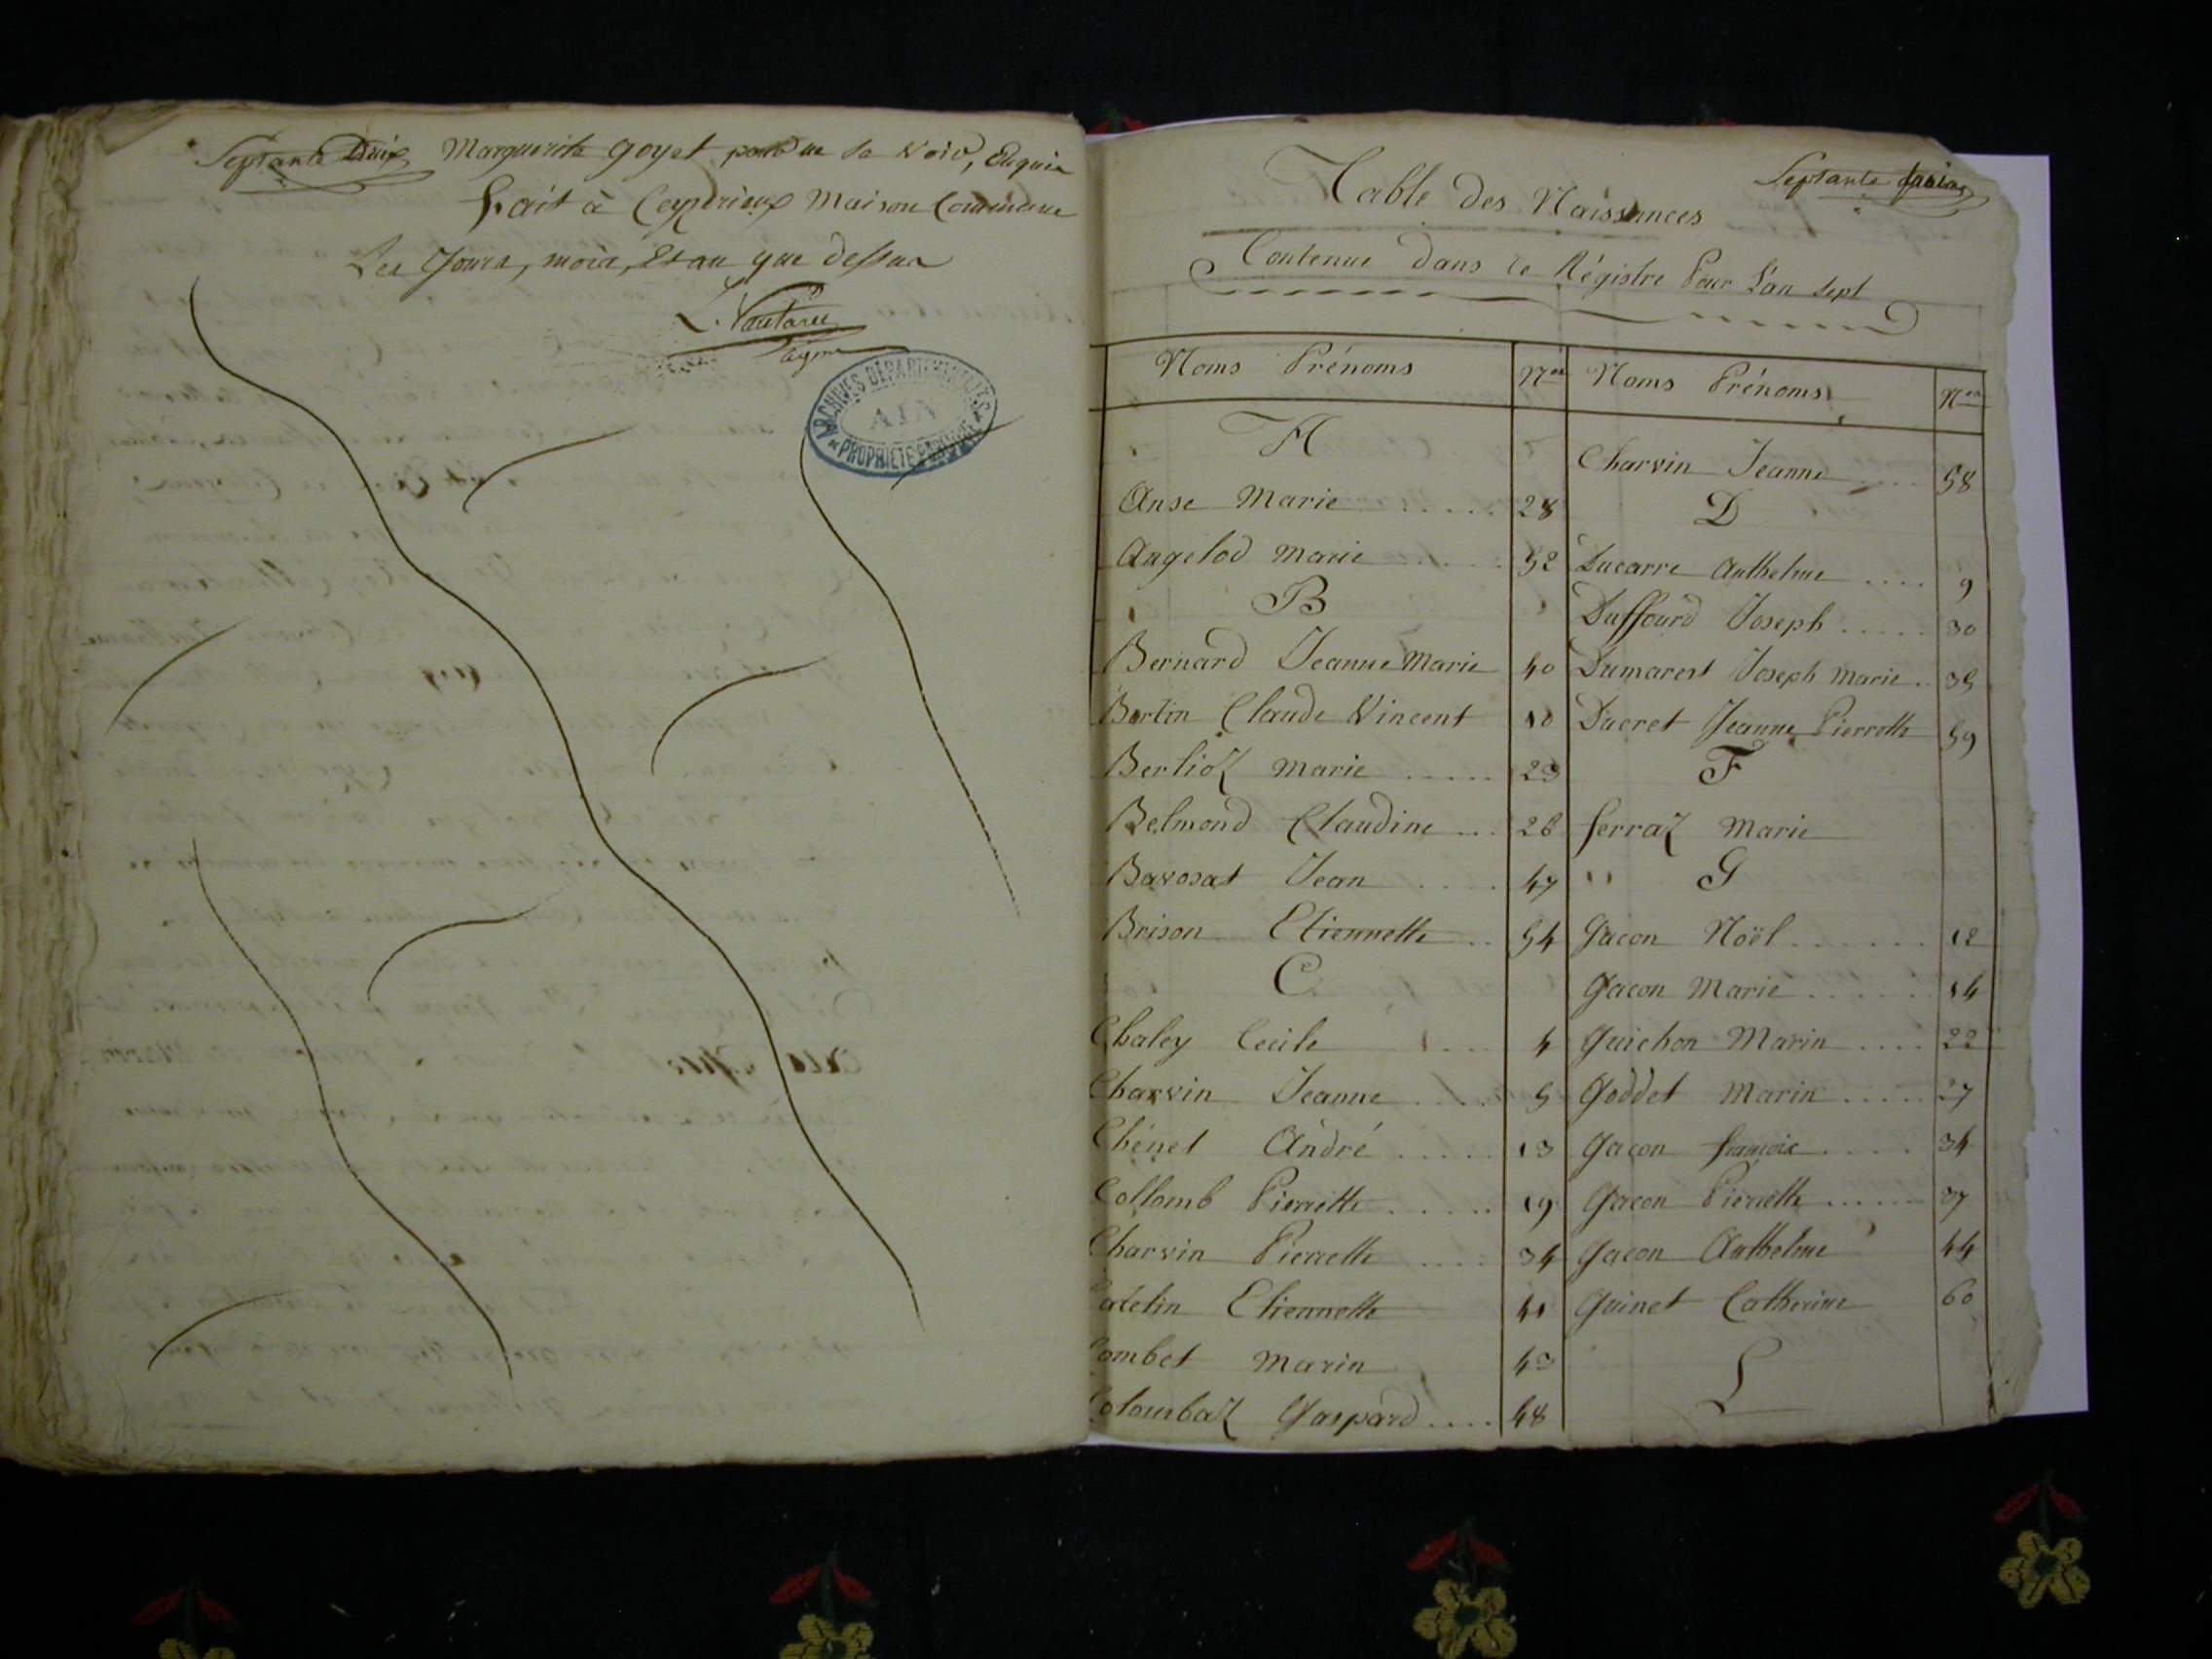 Septante Deux Marguerite Goyet pour de la Void,
fait à Ceyzerieux Maison Commune
Les Jours, mois, Et an que dessus
ARCHIVES DÉPARTEMENTALES
AIN
PROPRIÉTÉ PUBLIQUE
Septante
Table des Naissances
Contenue dans le Régistre Pour L'an sept
Noms Prénoms Nos Noms Prénoms Nos
A
Anse Marie ..... 28
Angelod Marie ..... 52
B
Bernard Jeanne Marie 40
Bertin Claude Vincent 10
Berlioz Marie ..... 23
Belmond Claudine ... 26
Bavosat Jean .... 47
Brison Etiennette .. 54
C
Chaley Cecile .... 4
Charvin Jeanne .... 5
Chénet André ..... 13
Collomb Pierrette ..... 19
Charvin Pierrette .... 34
Catelin Etiennette 41
Combet Marin 43
Colombaz Gaspard .... 48
Charvin Jeanne .... 58
D
Ducarre Anthelme .... 9
Duffourd Joseph ..... 30
Dumarest Joseph Marie .. 35
Ducret Jeanne Pierrette 59
F
ferraz Marie
G
Gacon Noël ...... 12
Gacon Marie ...... 14
Guichon Marin .... 22
Goddet Marin ..... 27
Gacon françois .... 34
Gacon Pierrette ...... 37
Gacon Anthelme 44
Guinet Catherine 60
L